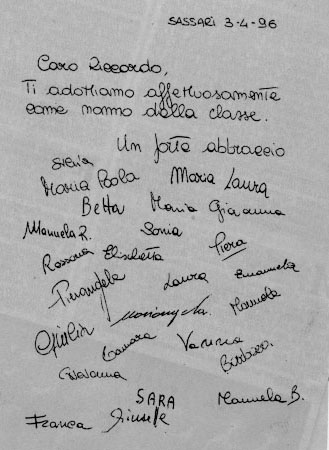 SASSARI 3-4-96
Caro Riccardo,
Ti adottiamo affettuosamente
come nonno della classe.
Un forte abbraccio
Silvia
Maria Paola Maria Laura
Betta Maria Giovanna
Manuela R. Sonia Piera
Rossana Elisabetta
Pinangela Laura Emanuela
Giulia Mariangela Manuela
Tamara Vanessa Barbara
Giovanna
SARA Manuela B.
Franca Giuseppe